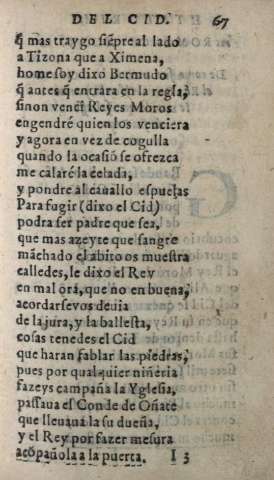 DEL CID. 67
q̃ mas traygo siẽpre al lado
a Tizona que a Ximena,
home soy dixo Bermudo
q̃ antes q̃ entrara en la regla,
sinon vencì Reyes Moros
engendré quien los venciera
y agora en vez de cogulla
quando la ocasiõ se ofrezca
me calaré la celada,
y pondre al cauallo espuelas
Para fugir (dixo el Cid)
podra ser padre que sea,
que mas azeyte que sangre
mãchado el abito os muestra
calledes, le dixo el Rey
en mal ora, que no en buena,
acordarsevos deuia
de la jura, y la ballesta,
cosas tenedes el Cid
que haran fablar las piedras,
pues por qualquier niñeria
fazeys campaña la Yglesia,
passaua el Conde de Oñate
que lleuaua la su dueña,
y el Rey por fazer mesura
acõpañola a la puerta. I 3